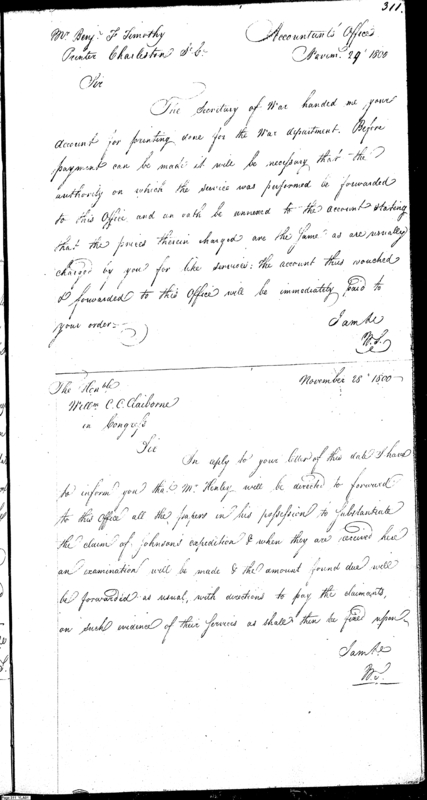 311.
Mr Benjn F Timothy
Printer Charleston S. C.
Accountants Office
Novem. 29th 1800
Sir
The Secretary of War handed me your
account for printing done for the War department. Before
payment can be made it will be necessary that the
authority on which the service was performed be forwarded
to this Office and an oath be annexed to the account stating
that the prices therein charged are the same as are usually
charged by you for like services: the account thus vouched
& forwarded to this Office will be immediately paid to
your order.
I am &c
W. S.
The Honble
Willm C. C. Claiborne
in Congress
November 28th 1800
Sir
In reply to your letter of this date I have
to inform you that Mr Henley will be directed to forward
to this Office all the papers in his possession to substantiate
the claim of Johnsons expedition & when they are received here
an examination will be made & the amount found due will
be forwarded as usual, with directions to pay the claimants,
on such evidence of their services as shall then be fixed upon.
I am &c.
W. S.